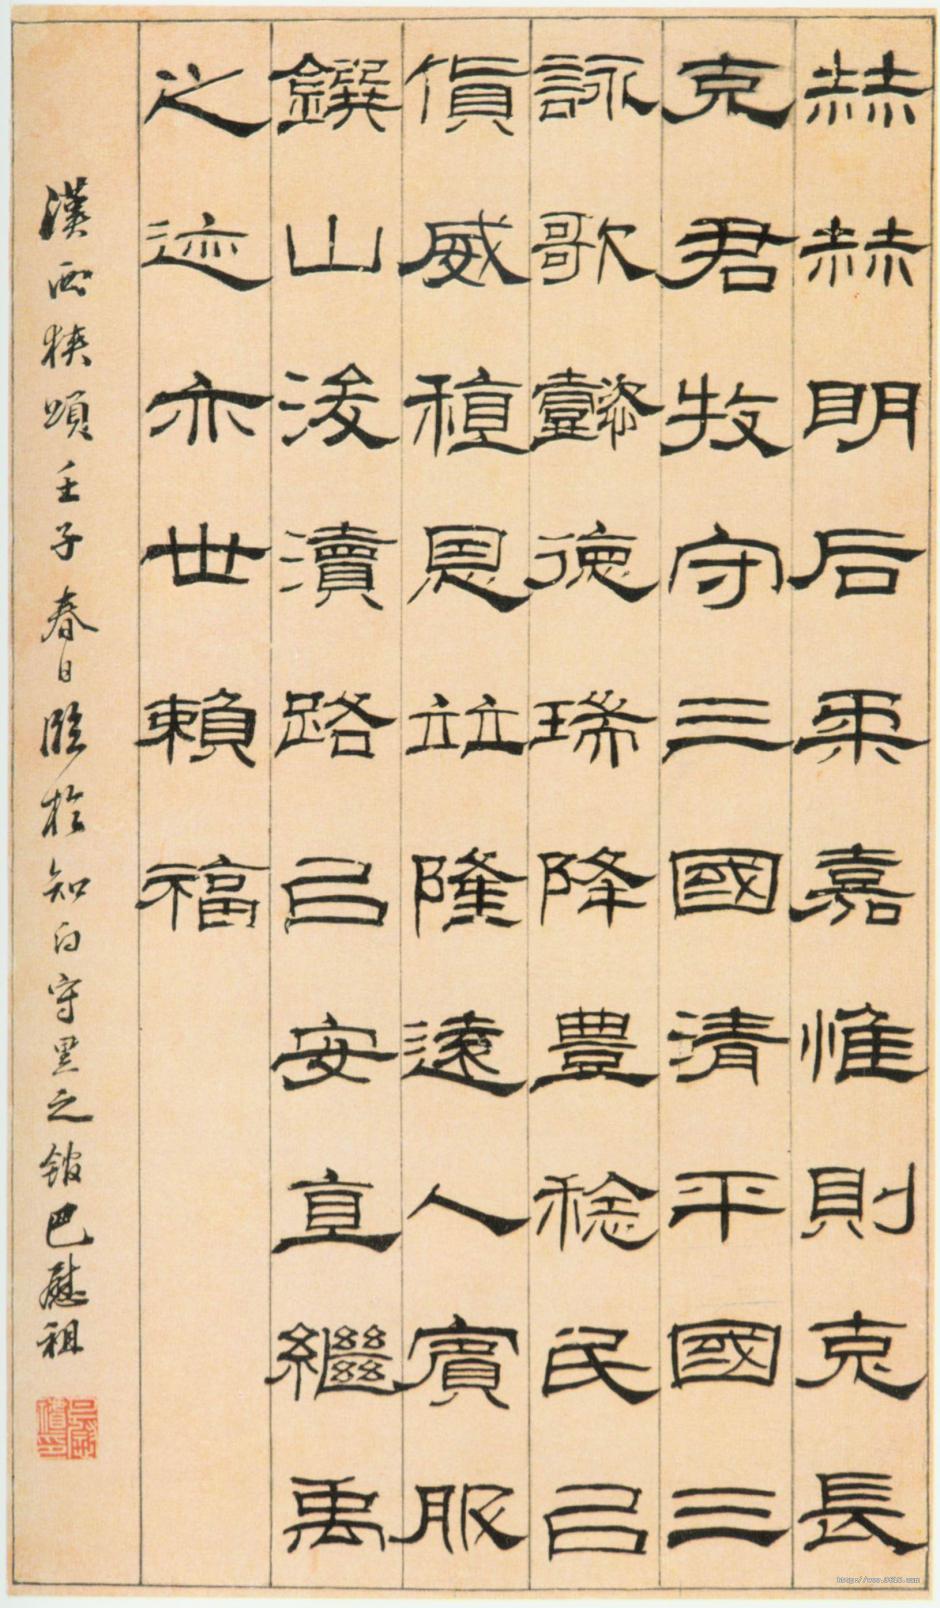 赫赫明后柔嘉惟則克長
克君牧守三國清平國三
詠歌懿德瑞降豊稔民㠯
貨威穜恩竝隆遠人賓服
鐉山浚瀆路㠯安直繼禹
之迹亦世賴福
漢西狹頌壬子春日臨於知白守黑之館巴慰祖